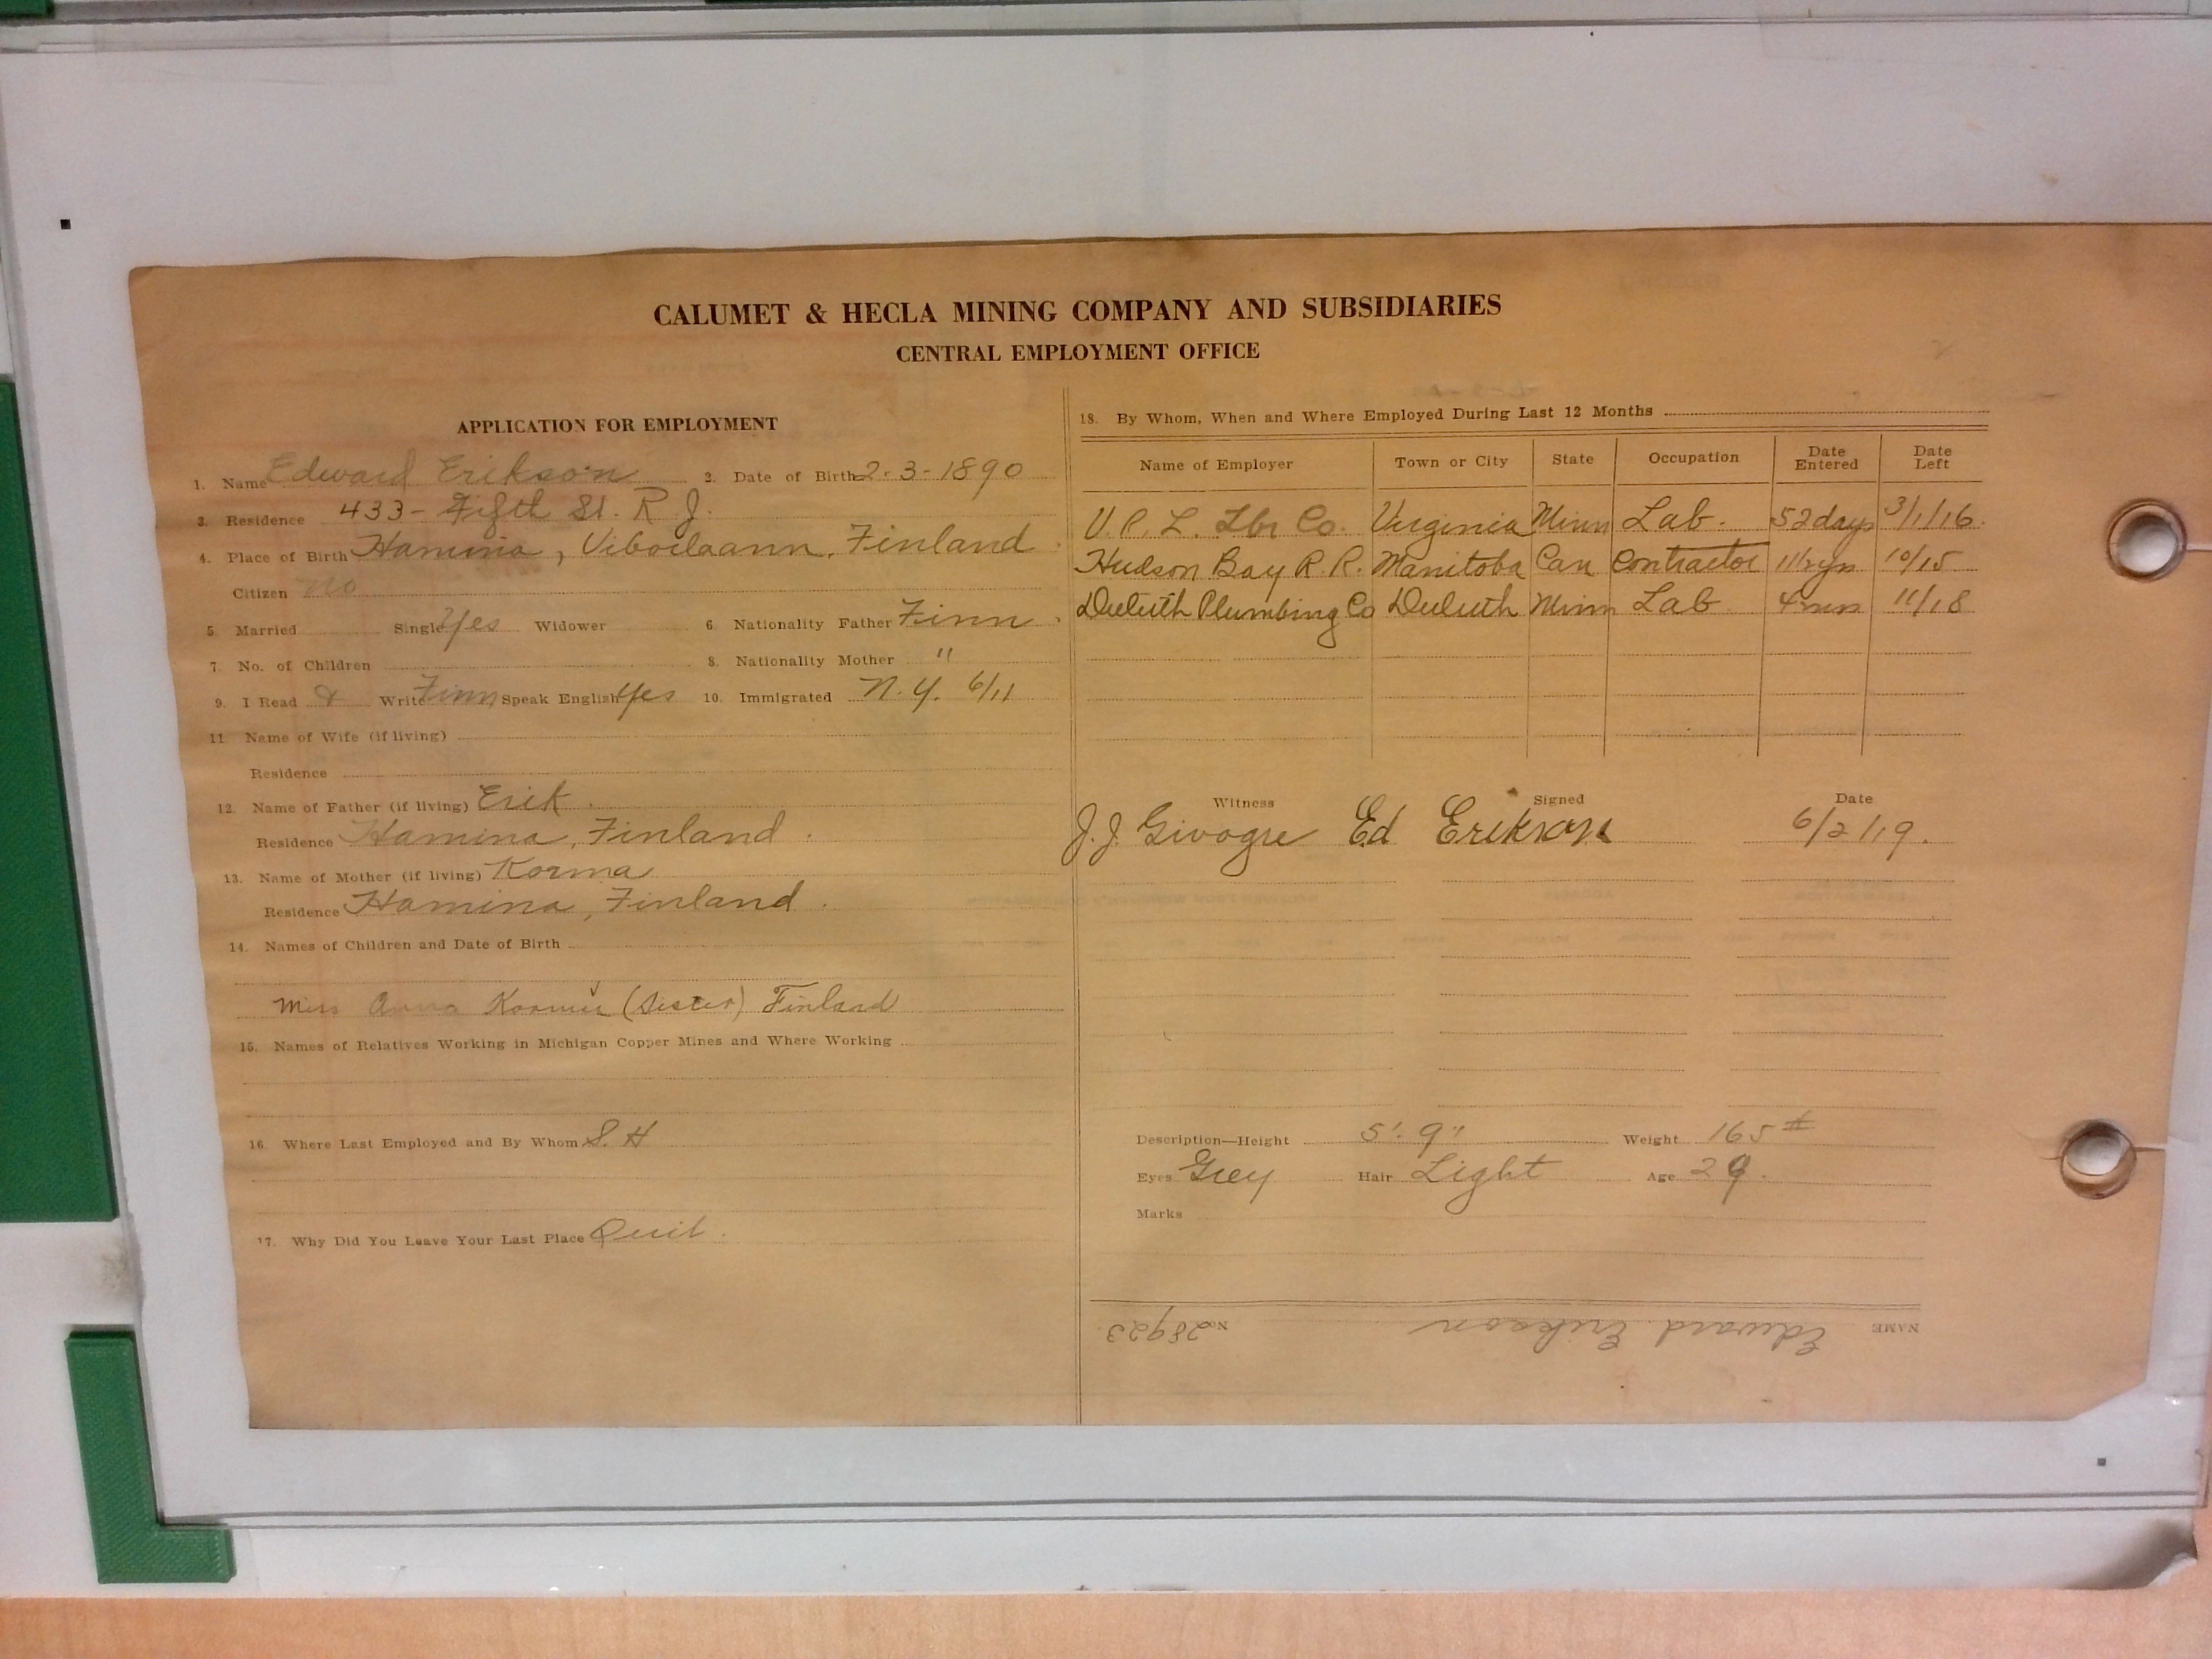 CALUMET & HECLA MINING COMPANY AND SUBSIDIARIES
CENTRAL EMPLOYMENT OFFICE
APPLICATION FOR EMPLOYMENT
1. Name Edward Erikson 2. Date of Birth 2-3-1890
3. Residence 433- Fifth St. R J.
4. Place of Birth Hamina, Finland
Citizen No
5 Married Single Yes Widower 6. Nationality Father Finn
7. No. of Children 8. Nationality Mother "
9. I Read & Write Finn Speak English Yes 10. Immigrated N.Y. 6/11
11 Name of Wife (if living)
Residence
12. Name of Father (if living) Erik
Residence Hamina, Finland
13. Name of Mother (if living) Korma
Residence Hamina, Finland
14. Names of Children and Date of Birth
Miss Anna (Sister) Finland
15. Names of Relatives Working in Michigan Copper Mines and Where Working
16. Where Last Employed and By Whom S. H
17. Why Did You Leave Your Last Place Quit.
18. By Whom, When and Where Employed During Last 12 Months
Name of Employer Town or City State Occupation Date Entered Date Left
V. R. L. Lbr Co. Virginia Minn Lab. 52 days 3/1/16.
Hudson Bay R. R. Manitoba Can Contractor 10/15
Duluth Plumbing Co Duluth Minn Lab 11/18
Witness Signed Date
J. J. Givogre Ed Erikson 6/2/19.
Description—Height 5'. 9" Weight 165#
Eyes Grey Hair Light Age 29.
Marks
NAME Edward Erikson No. 28923